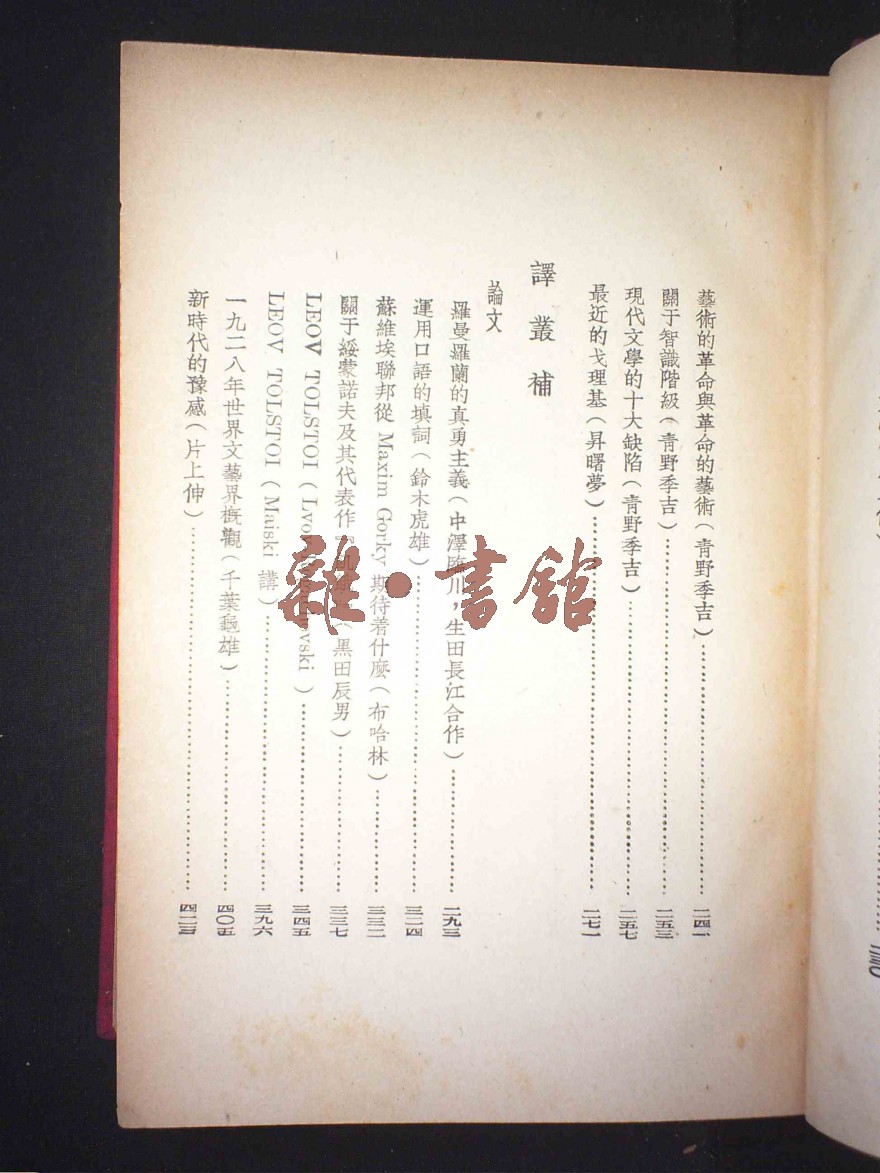 藝術的革命與革命的藝術(靑野季吉)……二四一
關于智識階級(靑野季吉)……二五三
現代文學的十大缺陷(靑野季吉)……二五七
最近的戈理基(昇曙夢)……二七一
譯叢補
論文
羅曼羅蘭的眞勇主義(中澤臨川,生田長江合作)……二九三
運用口語的塡詞(鈴木虎雄)……三二四
蘇維埃聯邦從 Maxim Gorky 期待着什麼(布哈林)……三三二
關于綏蒙諾夫及其代表作(黑田辰男)……三三七
LEOV TOLSTOI……三四五
LEOV TOLSTOI(Maiski 講)……三九六
一九二八年世界文藝界概觀(千葉龜雄)……四〇五
新時代的豫感(片上伸)……四二三
雜·書館